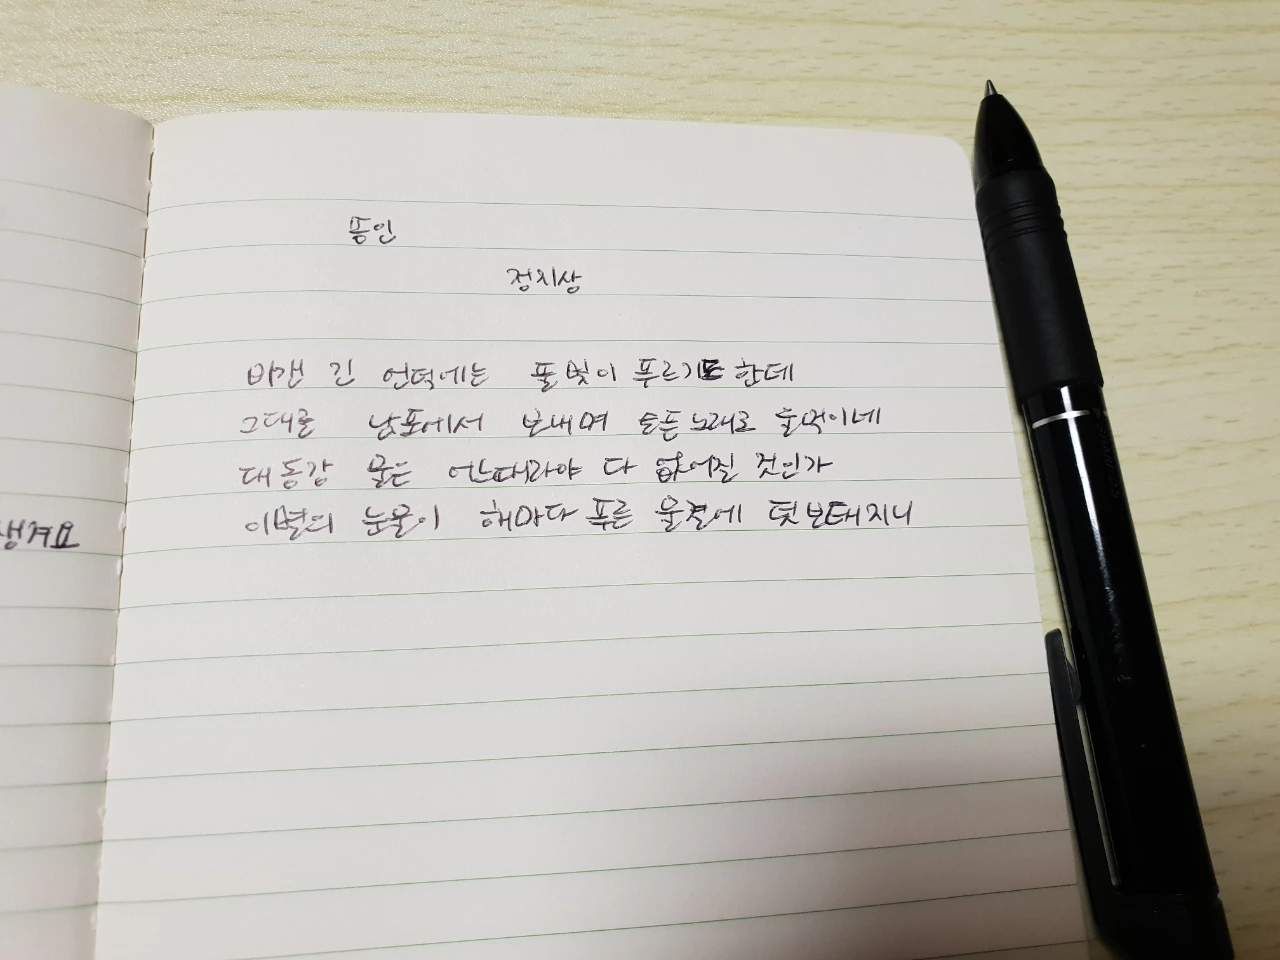 품인
정지상
비갠 긴 언덕에는 풀빛이 푸르기도 한데
그대를 남포에서 보내며 슬픈 노래로 울먹이네
대동강 물은 어느때라야 다 없어질 것인가
이별의 눈물이 해마다 푸른 물결에 덧보태지니
생겨요